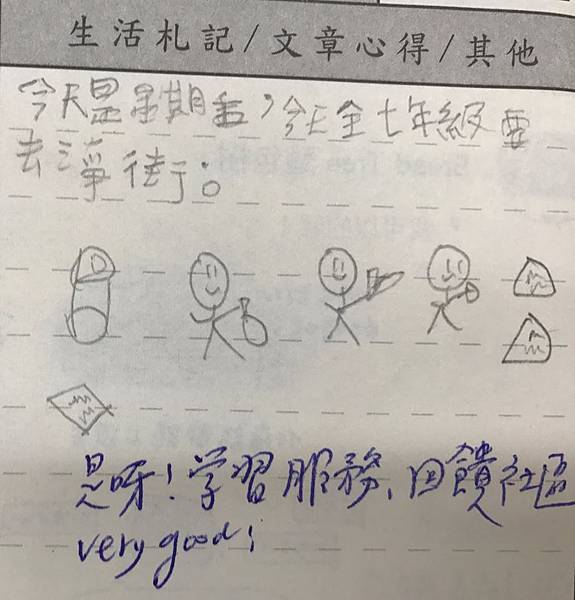 生活札記/文章心得/其他
今天是星期五，今天全七年級要
去淨街。
是呀！学習服務、回饋社區
very good！